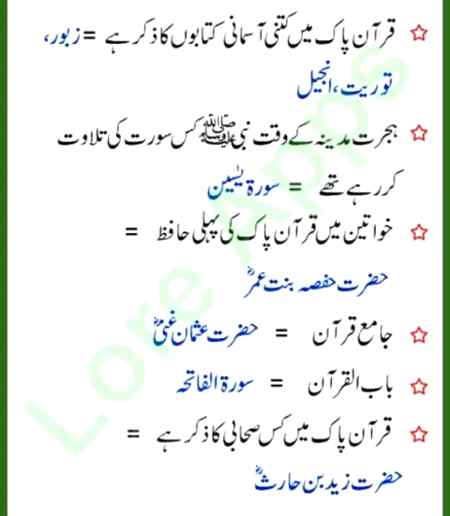 قرآن پاک میں کتنی آسمانی کتابوں کا ذکر ہے = زبور،
توریت، انجیل
ہجرت مدینہ کے وقت نبی ﷺ کس سورت کی تلاوت
کر رہے تھے = سورۃ یٰسین
خواتین میں قرآن پاک کی پہلی حافظ =
حضرت حفصہ بنت عمرؓ
جامع قرآن = حضرت عثمان غنیؓ
باب القرآن = سورۃ الفاتحہ
قرآن پاک میں کس صحابی کا ذکر ہے =
حضرت زید بن حارثؓ
Lore Apps